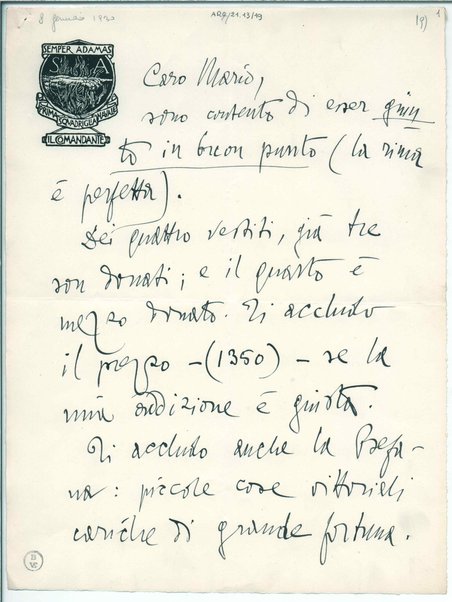 8 gennaio 1920
ARQ/21.13/19
1
SEMPER ADAMAS
S A
PRIMA SQUADRIGLIA NAVALE
IL COMANDANTE
Caro Mario,
sono contento di esser giun
to in buon punto (la rima
è perfetta).
Dei quattro vestiti, già tre
son donati; e il quarto è
mezzo donato. Ti accludo
il prezzo -(1350) - se la
mia addizione è giusta.
Ti accludo anche la Befa-
na: piccole cose vittoriali
cariche di grande fortuna.